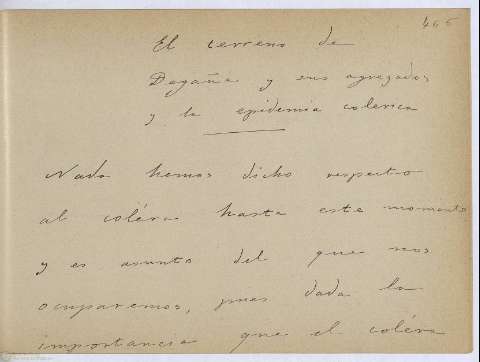 466
El terreno de
Dagaña y sus agregados
y la epidemia colerica
Nada hemos dicho respecto
al coléra hasta este momento
y es asunto del que nos
ocuparemos, pues dada la
importancia que el coléra